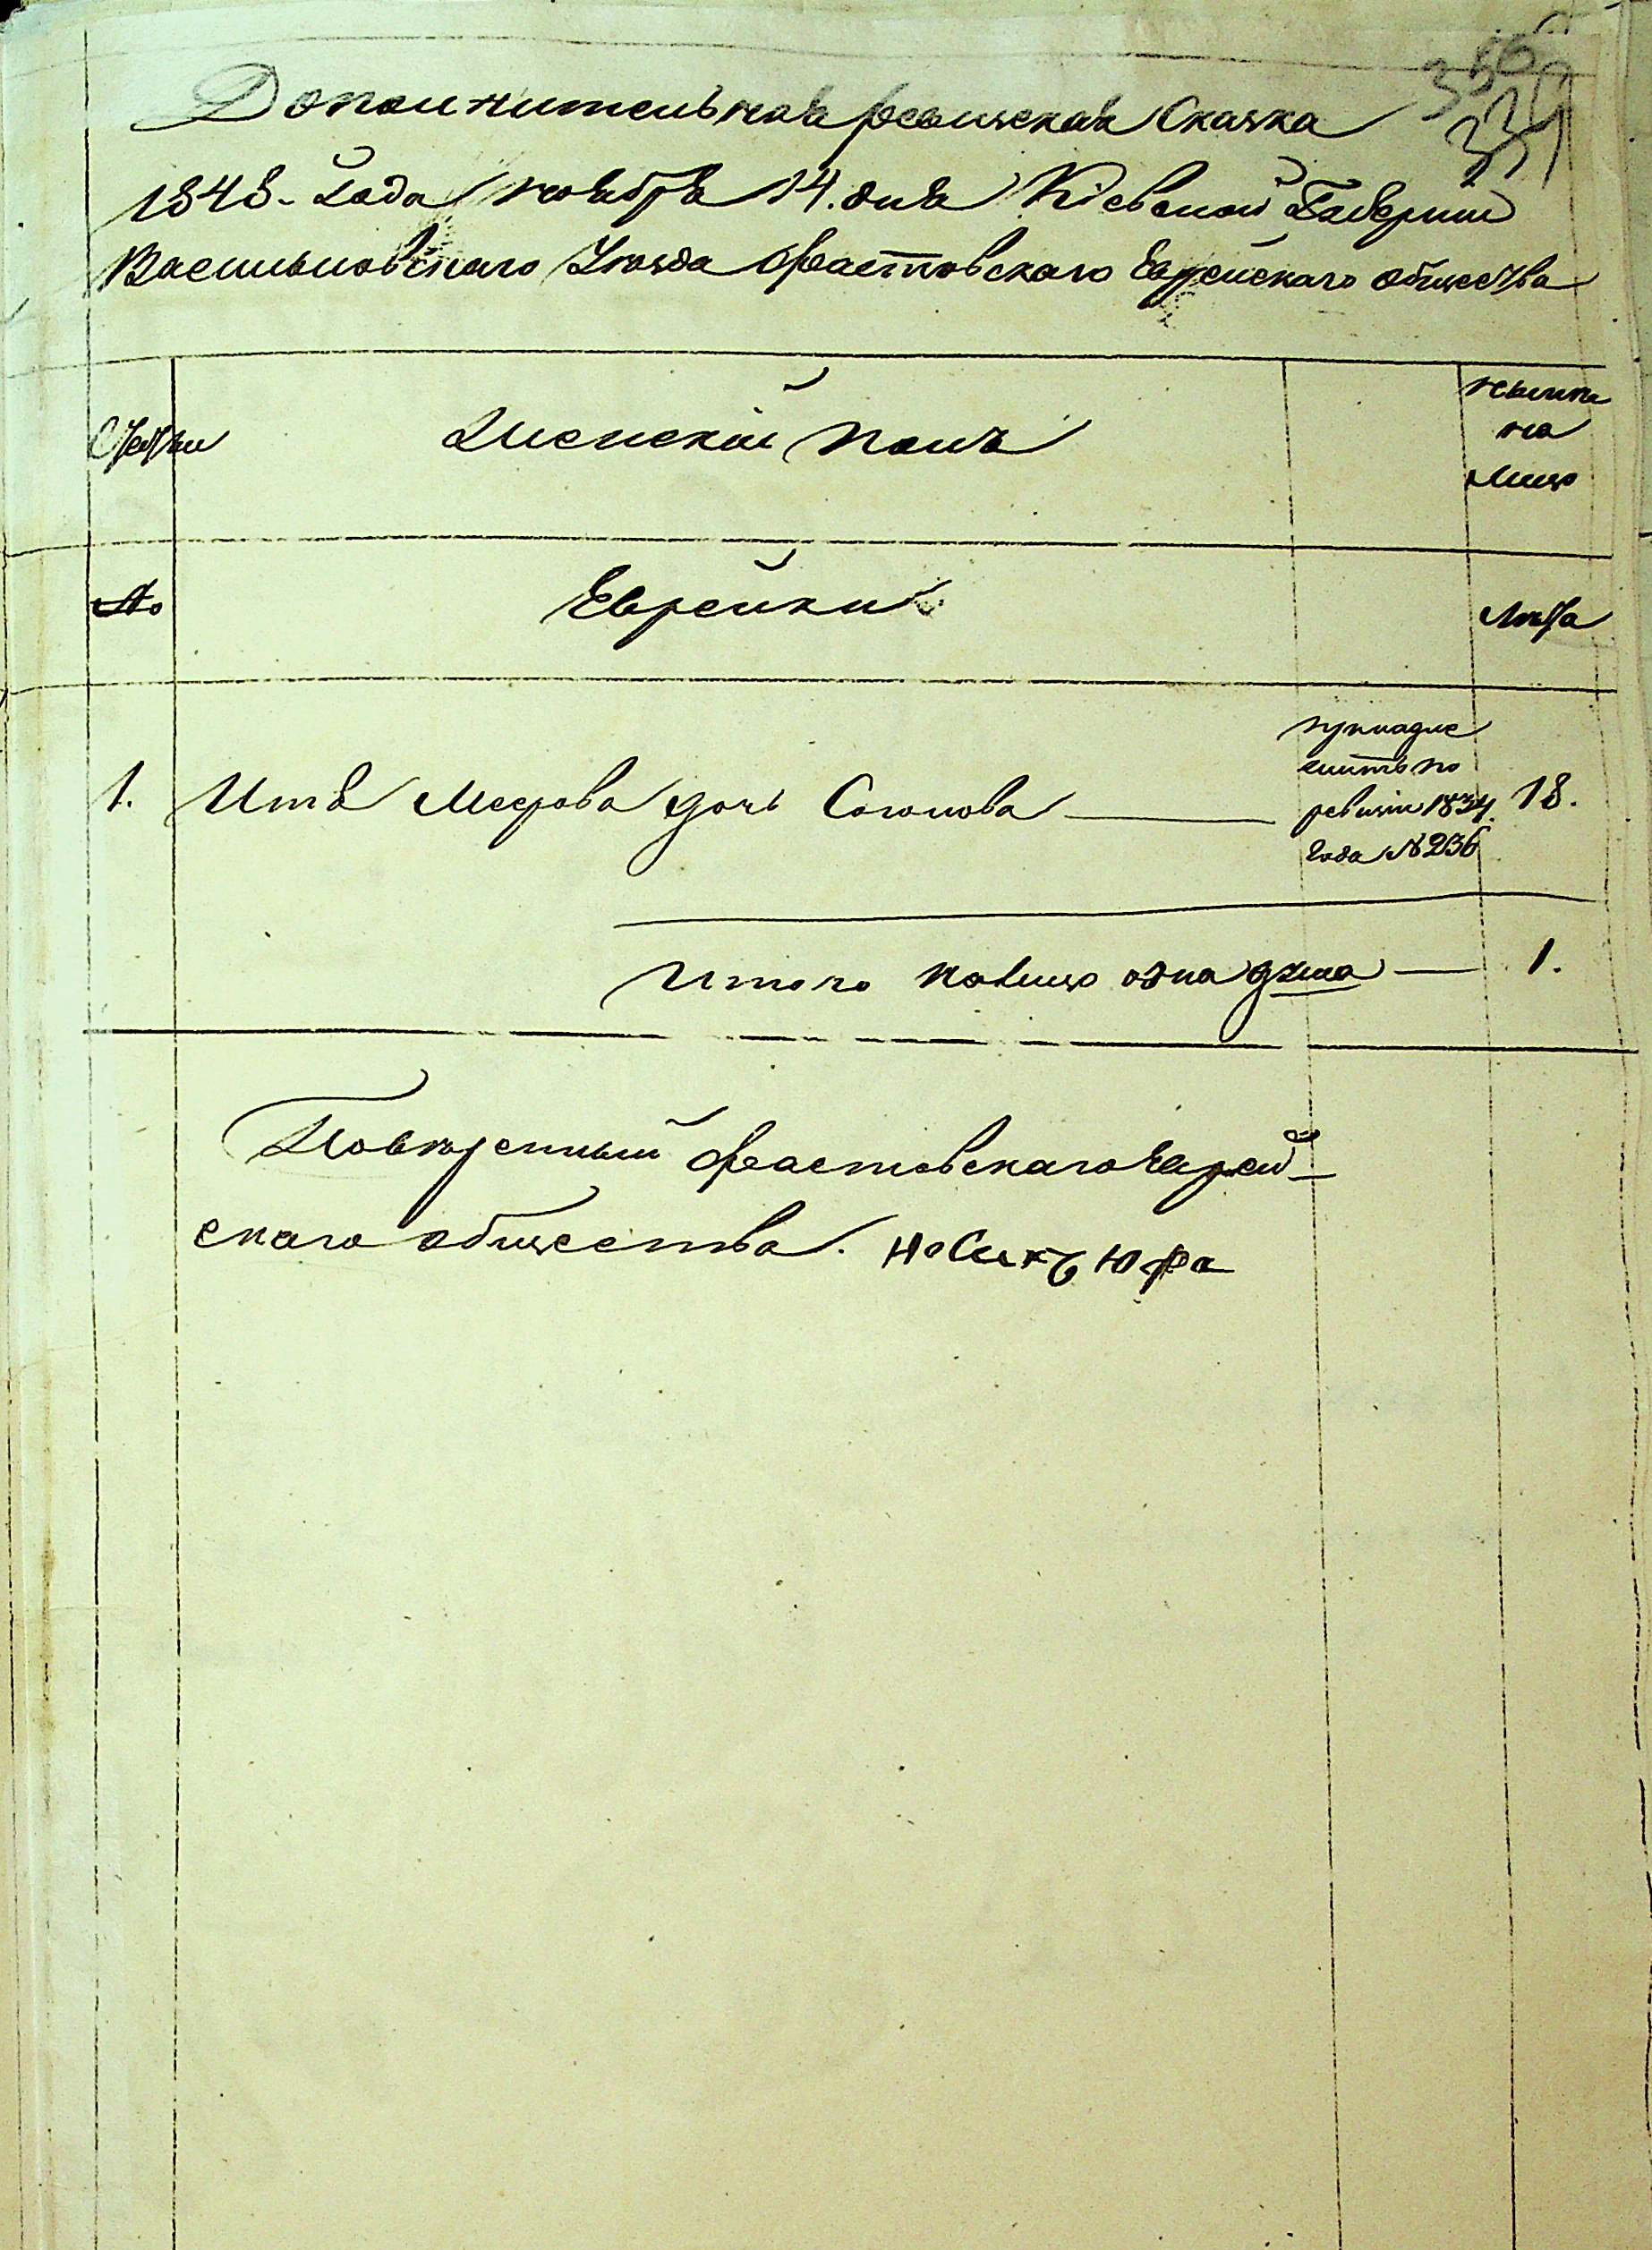 Дополнительная ревизская Сказка
1848. Года ноября 14. дня Кіевской Губерніи
Васильковскаго Уѣзда Фастовскаго Еврейскаго общества
Семьи
Женскій полъ
нынѣ
на
лицо
№
Еврейки
Лѣта
1. Итя Меерова дочь Союнова
принадле
житъ по
ревизіи 1834
года № 236
18.
Итого налицо одна душа — 1.
Повѣренный Фастовскаго Еврей-
скаго общества.